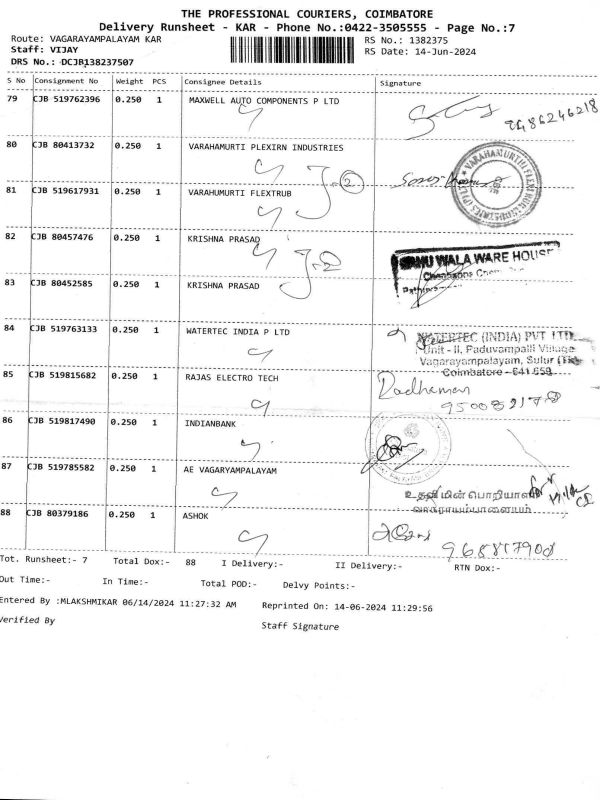 THE PROFESSIONAL COURIERS, COIMBATORE
Delivery Runsheet - KAR - Phone No.:0422-3505555 - Page No.:7
Route: VAGARAYAMPALAYAM KAR
RS No.: 1382375
Staff: VIJAY
RS Date: 14-Jun-2024
DRS No.: DCJB138237507
S No Consignment No Weight PCS Consignee Details Signature
79 CJB 519762396 0.250 1 MAXWELL AUTO COMPONENTS P LTD
80 CJB 80413732 0.250 1 VARAHAMURTI PLEXIRN INDUSTRIES
81 CJB 519617931 0.250 1 VARAHUMURTI FLEXTRUB
82 CJB 80457476 0.250 1 KRISHNA PRASAD
WALA WARE HOUSE
83 CJB 80452585 0.250 1 KRISHNA PRASAD
84 CJB 519763133 0.250 1 WATERTEC INDIA P LTD
WATERTEC (INDIA) PVT LTD
Unit - II, Paduvampalli Village
Vagarayampalayam, Sulur (Tk)
Coimbatore - 641 659
85 CJB 519815682 0.250 1 RAJAS ELECTRO TECH
Radhamani
86 CJB 519817490 0.250 1 INDIANBANK
87 CJB 519785582 0.250 1 AE VAGARYAMPALAYAM
உதவி மின் பொறியாளர்
வாகராயம்பாளையம்
88 CJB 80379186 0.250 1 ASHOK
Tot. Runsheet:- 7 Total Dox:- 88 I Delivery:- II Delivery:- RTN Dox:-
Out Time:- In Time:- Total POD:- Delvy Points:-
Entered By :MLAKSHMIKAR 06/14/2024 11:27:32 AM Reprinted On: 14-06-2024 11:29:56
Verified By Staff Signature